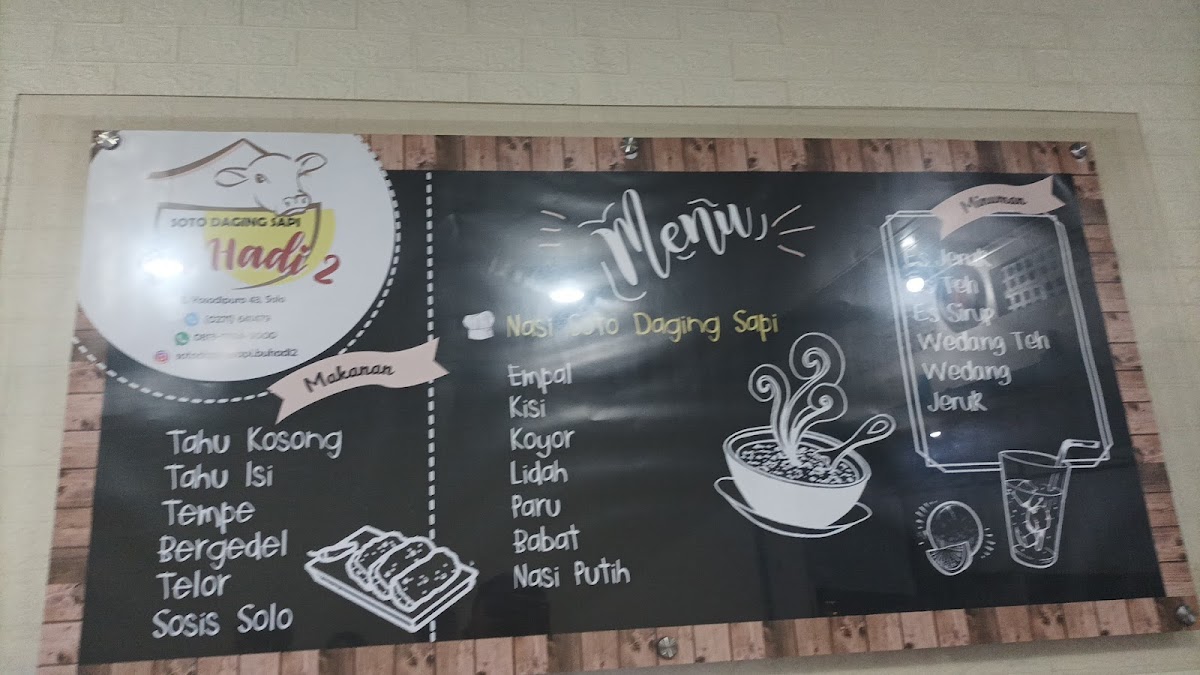 SOTO DAGING SAPI
Hadi 2
48, Solo
(0271)
Makanan
Tahu Kosong
Tahu Isi
Tempe
Bergedel
Telor
Sosis Solo
Menu
Nasi Soto Daging Sapi
Empal
Kisi
Koyor
Lidah
Paru
Babat
Nasi Putih
Minuman
Es Jeruk
Teh
Es Sirup
Wedang Teh
Wedang
Jeruk